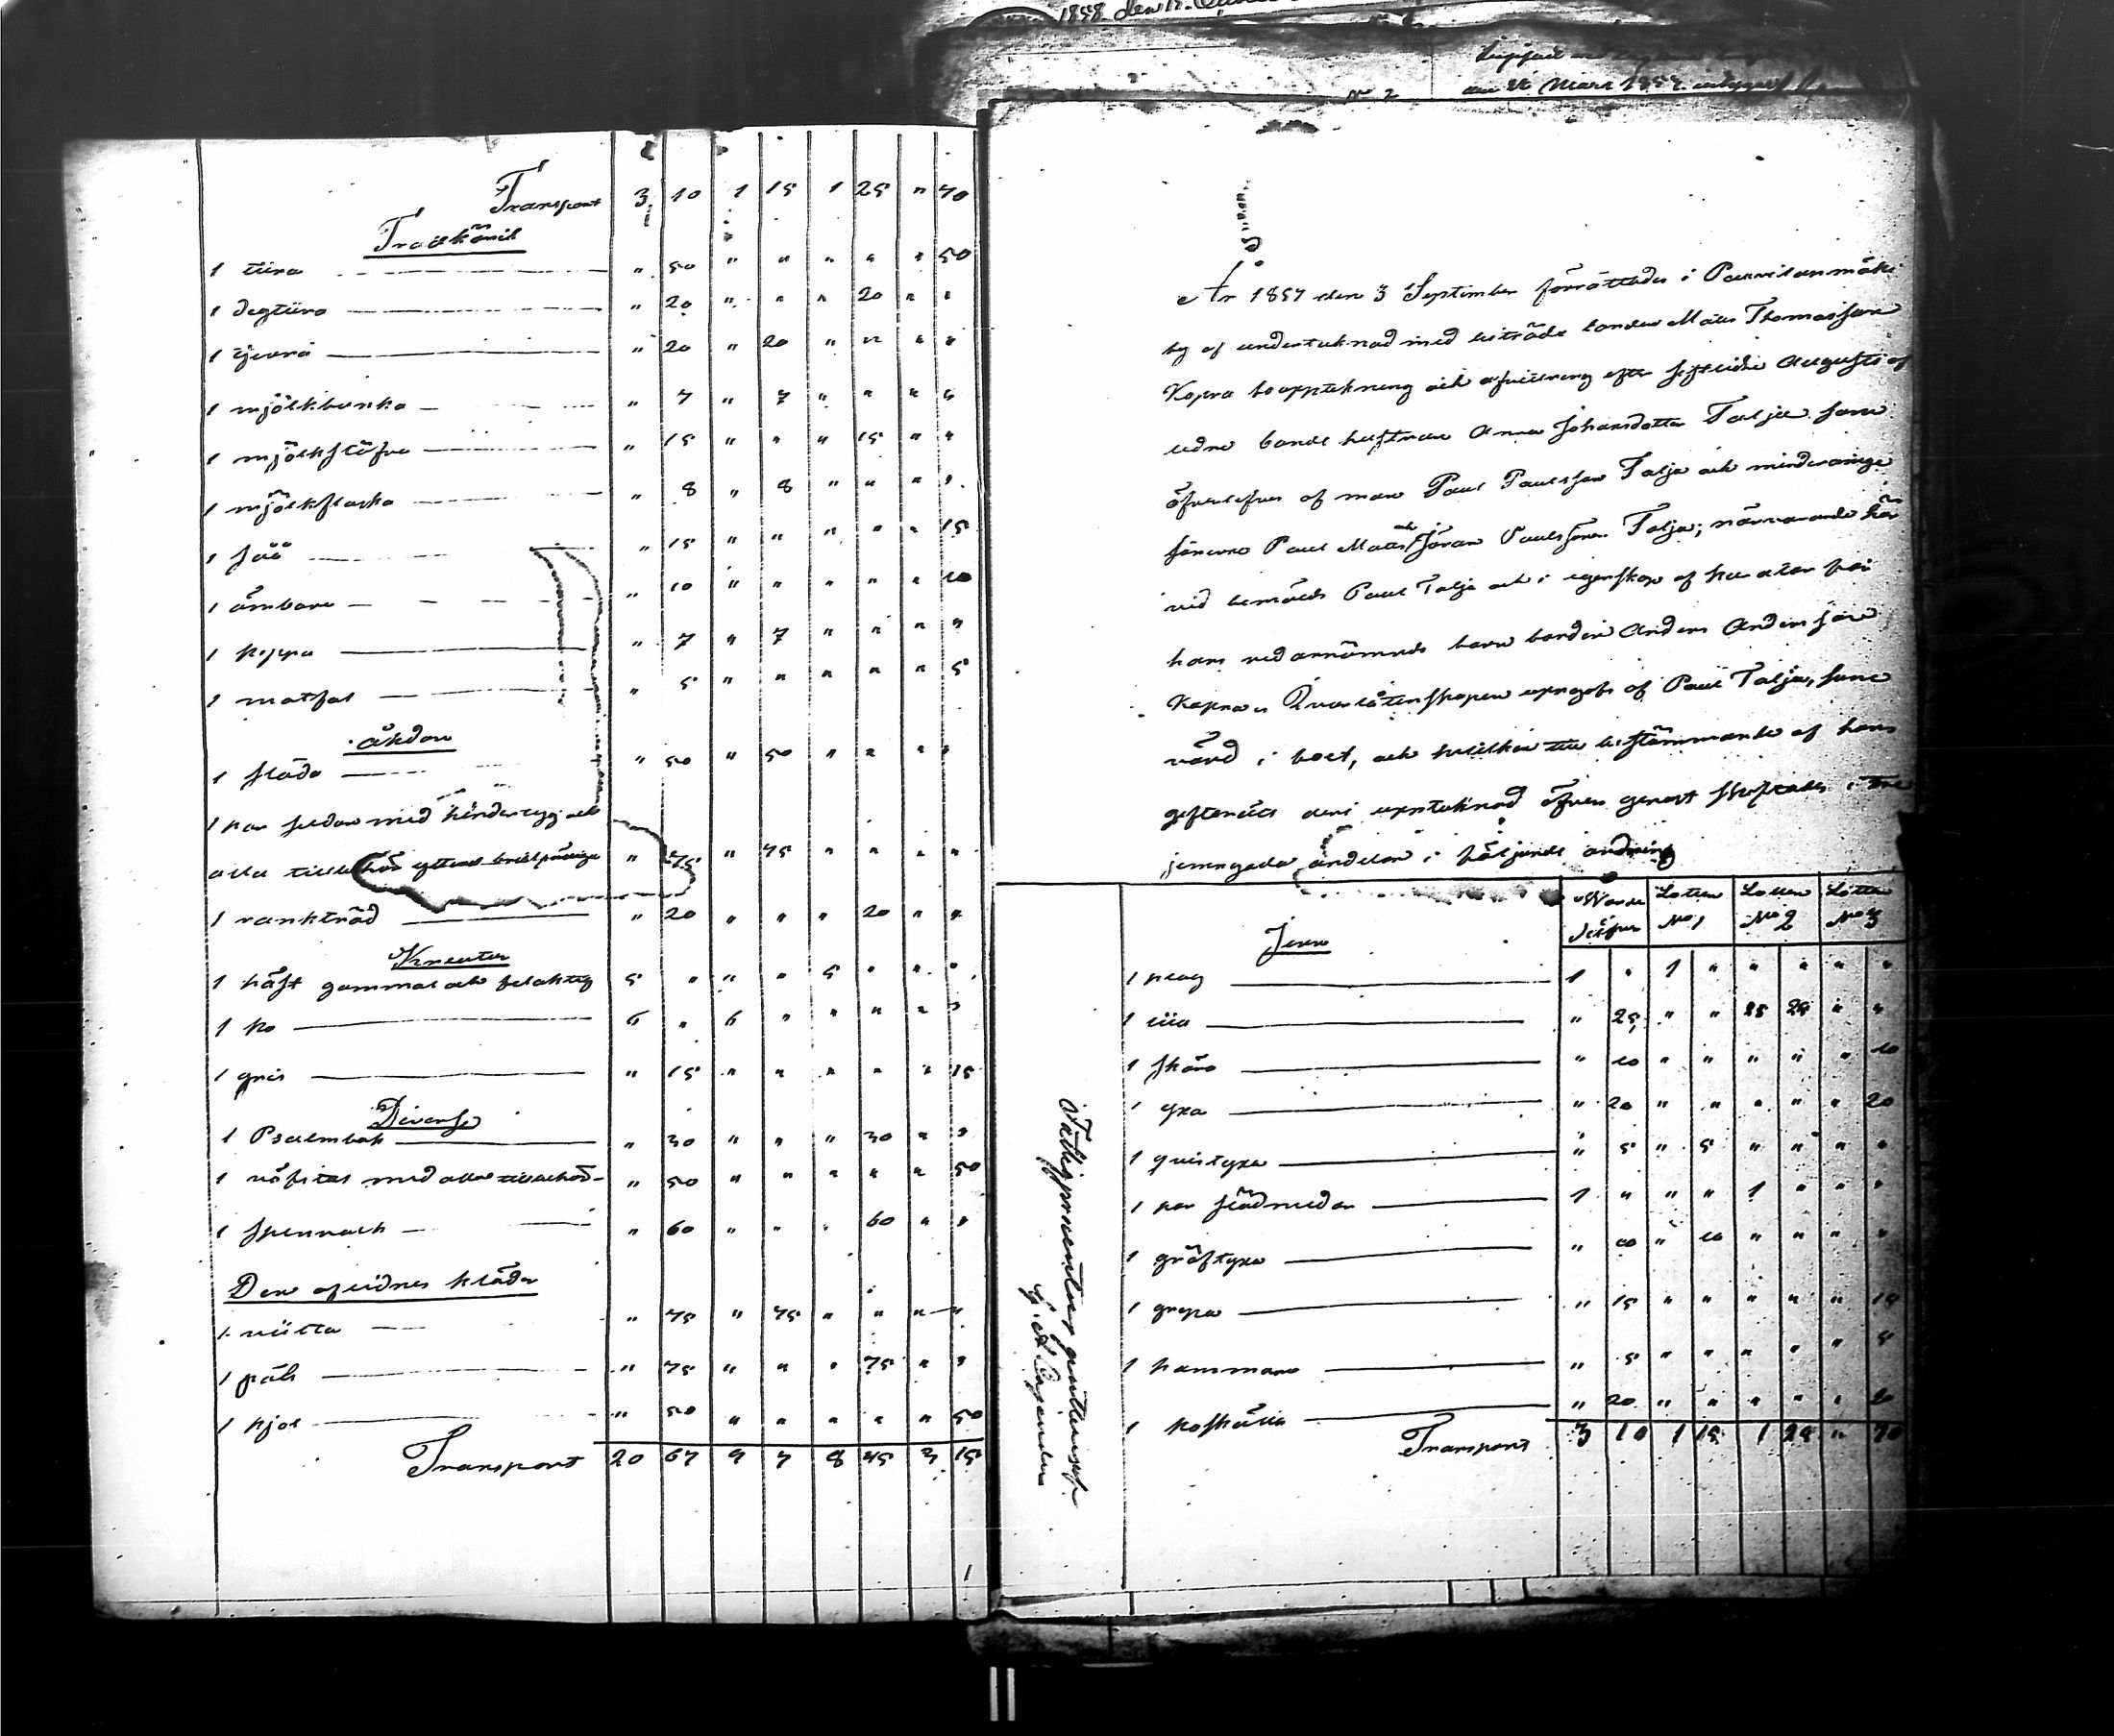 Transport 3 10 1 15 1 25 " 70
Trädkäril
1 tiina " 50 " " " " " 50
1 degtiina " 20 " " " 20 " "
1 tjerna " 20 " 20 " " " "
1 mjölkbunka " 7 " 7 " " " "
1 mjölkstäfva " 15 " " " 15 " "
1 mjölkflaska " 8 " 8 " " " "
1 såå " 15 " " " " " 15
1 ämbare " 10 " " " " " 10
1 kappa " 7 " 7 " " " "
1 matfat " 5 " " " " " 5
åkdon
1 släda " 50 " 50 " " " "
1 par med
alla " 75 " 75 " " " "
1 " 20 " " " 20 " "
Kreatur
1 häst gammal och felaktig 5 " " " 5 " " "
1 ko 6 " 6 " " " " "
1 gris " 15 " " " " " 15
Diverse
1 Psalmbok " 30 " " " 30 " "
1 väfstol med alla tillbehör " 50 " " " " " 50
1 spinrock " 60 " " " 60 " "
Den aflidnes kläder
1 " 75 " 75 " " " "
1 päls " 75 " " " 75 " "
1 kjol " 50 " " " " " 50
Transport 20 67 9 7 8 45 3 15
1858 den
den Mars 1858
No 2
År 1857 den 3 September förrättades i Parvilanmäki
by af undertecknad med biträde bonden Mats Thomasson
Kopra bouppteckning och afvittring efter sistlidne Augusti af
lidne bonde hustrun Anna Johansdotter Talja som
öfverlefves af man Paul Paulsson Talja och minderåriga
sönerne Paul Mats och Jöran Paulssöner Talja; närvarande här
vid bemälde Paul Talja och i egenskap af kurator för
hans ofvannämnde barn bonden Anders Andersson
Kopra. Qvarlåtenskapen uppgafs af Paul Talja, som
vård i boet, och hvilken till bestämmande af hans
giftorätt blef upptecknad öfver genast skiftades i tre
jemngoda andelar i följande ordning
Värde Silfver Lotten No 1 Lotten No 2 Lotten No 3
Jern
1 plog 1 " 1 " " " " "
1 lia " 25 " " 25 25 " "
1 skära " 10 " " " " " 10
1 yxa " 20 " " " " " 20
1 qvistyxa " 5 " 5 " " " "
1 par slädmedar 1 " " " 1 " " "
1 gräftyxa " 10 " 10 " " " "
1 grepa " 15 " " " " " 15
1 hammare " 5 " " " " " 5
1 koskälla " 20 " " " " " 20
Transport 3 10 1 15 1 25 " 70
Fattigprocenten qvitteras